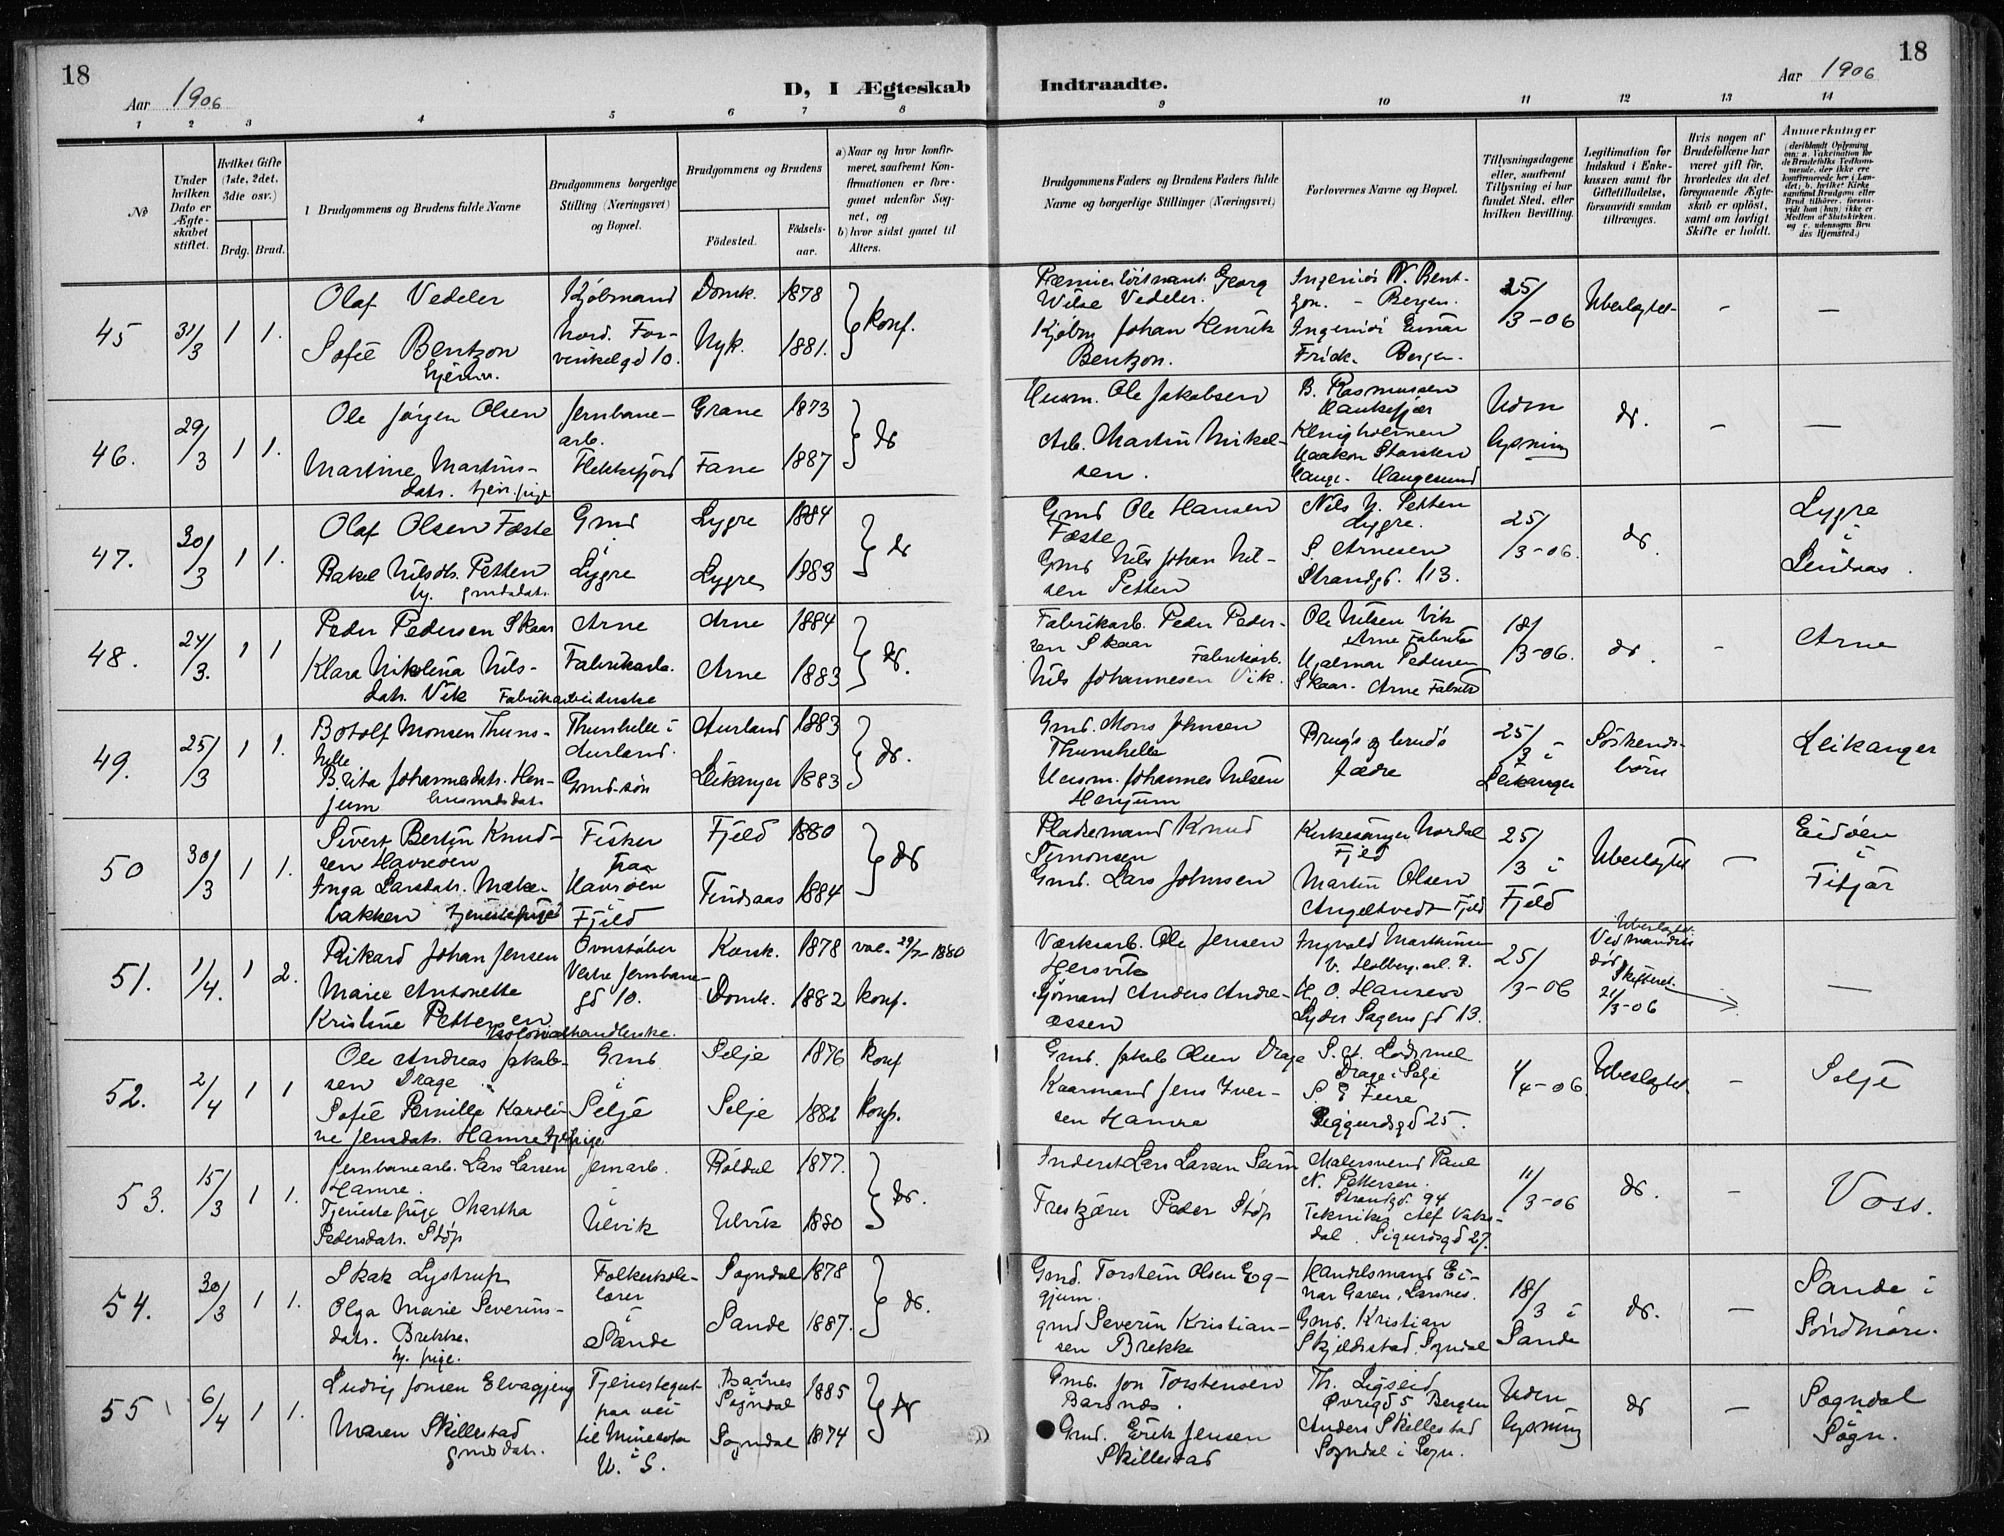 18
Aar 1906
D, I Ægteskab
Indtraadte.
Aar 1906
18
1 2 3 4 5 6 7 8 9 10 11 12 13 14
№
Under hvilken Dato er Ægteskabet stiftet.
Hvilket Gifte (1ste, 2det, 3die osv.)
Brdg. Brud.
1 Brudgommens og Brudens fulde Navne
Brudgommens borgerlige Stilling (Næringsvei) og Bopæl.
Brudgommens og Brudens
Fødested. Fødselsaar.
a) Naar og hvor konfirmeret, saafremt Konfirmationen er foregaaet udenfor Sognet, og
b) hvor sidst gaaet til Alters.
Brudgommens Faders og Brudens Faders fulde Navne og borgerlige Stillinger (Næringsvei)
Forlovernes Navne og Bopæl.
Tillysningsdagene eller, saafremt Tillysning ei har fundet Sted, efter hvilken Bevilling.
Legitimation for Indskud i Enkekassen samt for Giftetilladelse, forsaavidt saadan tiltrænges.
Hvis nogen af Brudefolkene har været gift før, hvorledes da det foregaaende Ægteskab er opløst, samt om lovligt Skifte er holdt.
Anmerkninger
45 31/3 1 1.
Olaf Vedeler
Sofie Bentzon
hjemv.
Kjøbmand
Nord. For-
vinkelgd 10.
Domk. 1878
Nyk. 1881.
konf.
Premierløitnant Georg
Wilse Vedeler.
Kjøbm Johan Henrik
Bentzon.
Ingeniør N. Bent-
zon. - Bergen.
Ingeniør Einar
Frich. Bergen.
25/3-06
Ubeslægtet
46. 29/3 1 1.
Ole Jørgen Olsen
Martine Martins-
datr. tjen. pige
Jernbane-
arb.
Flekkefjord
Grane 1873
Fane 1887
do
Husm. Ole Jakobsen
Arb. Martin Mikel-
sen.
B. Rasmussen
Haakon
Hauge. Haugesund
Uden
lysning
do.
47. 30/3 1 1.
Olaf Olsen Fæste
Rakel Nilsdtr. Petten
tj. gmdsdatr.
Gmd
Lygre
Lygre 1884
Lygre 1883
do
Gmd Ole Hansen
Fæste
Gmd Nils Johan Nil-
sen Petten
Nils N. Petten
Lygre.
S. Arnesen
Strandgd. 113.
25/3-06.
do.
Lygre
i
Lindaas.
48. 24/3. 1 1
Peder Pedersen Skaar
Klara Nikolina Nils-
datr. Vik Fabrikarbeiderske
Arne
Fabrikarb.
Arne 1884
Arne 1883
do.
Fabrikarb. Peder Peder-
sen Skaar
Fabrikarb.
Nils Johannesen Vik.
Ole Nilsen Vik
Arne Fabrik
Hjalmar Pedersen
Skaar. Arne Fabrik
18/3-06.
do.
Arne
49. 25/3 1 1.
Botolf Monsen Thuns-
helle
Brita Johannesdatr. Hen-
jum husmdsdatr.
Thunshelle i
Aurland.
Gmd.søn
Aurland 1883
Leikanger 1883
do.
Gmd. Mons Johnsen
Thunshelle
Husm. Johannes Nilsen
Henjum
Brugs og bruds
fædre
25/3 i
Leikanger
Søskende-
børn
Leikanger
50 30/3 1 1.
Sivert Bertin Knud-
sen Havrøen
Inga Larsdatr. Mæke-
bakken tjenestepige
Fisker
fraa
Havrøen
i
Fjeld
Fjeld 1880
Findaas 1884
do
Pladsemand Knud
Simonsen
Gmd. Lars Johnsen
Kirkesanger Nordal
Fjeld
Martin Olsen
Angeltvedt Fjeld
25/3 i
Fjeld
Ubeslægtet
Eidøen
i
Fitjar
51. 1/4. 1 2.
Rikard Johan Jensen
Marie Antonette
Kristine Pettersen
Kolonialhandlerske.
Ovnstøber
Vestre Jernbane-
gd 10.
Korsk. 1878
Domk. 1882
konf.
Værksarb. Ole Jensen
Hersvik
Sjømand Anders Andre-
assen
Ingvald Martinsen
v. Holberg. al. 9.
H. O. Hansen
Lyder Sagens gd 13.
25/3-06
Ubeslægtet.
Ved mandens
død
Skiftet.
21/3-06
52. 2/4 1 1
Ole Andreas Jakob-
sen Drage
Sofie Pernille Karoli-
ne Jensdatr. Hamre tj.pige
Gmd
i
Selje
Selje 1876
Selje 1882
konf
konf.
Gmd. Jakob Olsen Drage
Kaarmand Jens Iver-
sen Hamre
Drage i Selje
Siggurdsgd 25.
1/4-06
Ubeslægtet.
Selje
53. 15/3 1 1.
Jernbanearb. Lars Larsen
Hamre.
Tjenestepige Martha
Pedersdatr. Støp
Jernarb.
i
Ulvik
Røldal 1877.
Ulvik 1880
do.
Inderst Lars Larsen Seim
Peder Støp
Malersvend Paul
N. Pettersen.
Strandgd. 94
Tekniker Alf Vaks-
dal. Sigurdsgd 27.
11/3-06
do.
Voss.
54. 30/3 1 1.
Skak Lystrup
Olga Marie Severins-
datr. Brekke.
tj. pige.
Folkeskole-
lærer
i
Sande
Sogndal 1878
Sande 1887.
do.
Gmd. Torstein Olsen Eg-
gjum.
gmd Severin Kristian-
sen Brekke
Handelsmand Ei-
nar Garen, Larsnes.
Gmd. Kristian
Skjeldestad. Sogndal
18/3 i
Sande
do.
Sande i
Søndmøre.
55 6/4 1 1.
Ludvig Jonsen Elvagjeng
Maren Skillestad
gmdsdatr.
Tjenestegut
paa vei
til Minesota
i
U. S.
Barnes
Sogndal 1885
Sogndal 1874
do
Gmd. Jon Torstensen
Barsnæs.
Gmd. Erik Jensen
Skillestad
Th. Ligseid
Øvregd 5 Bergen
Anders Skillestad
Sogndal i Sogn.
Uden
lysning
do
Sogndal
Sogn.